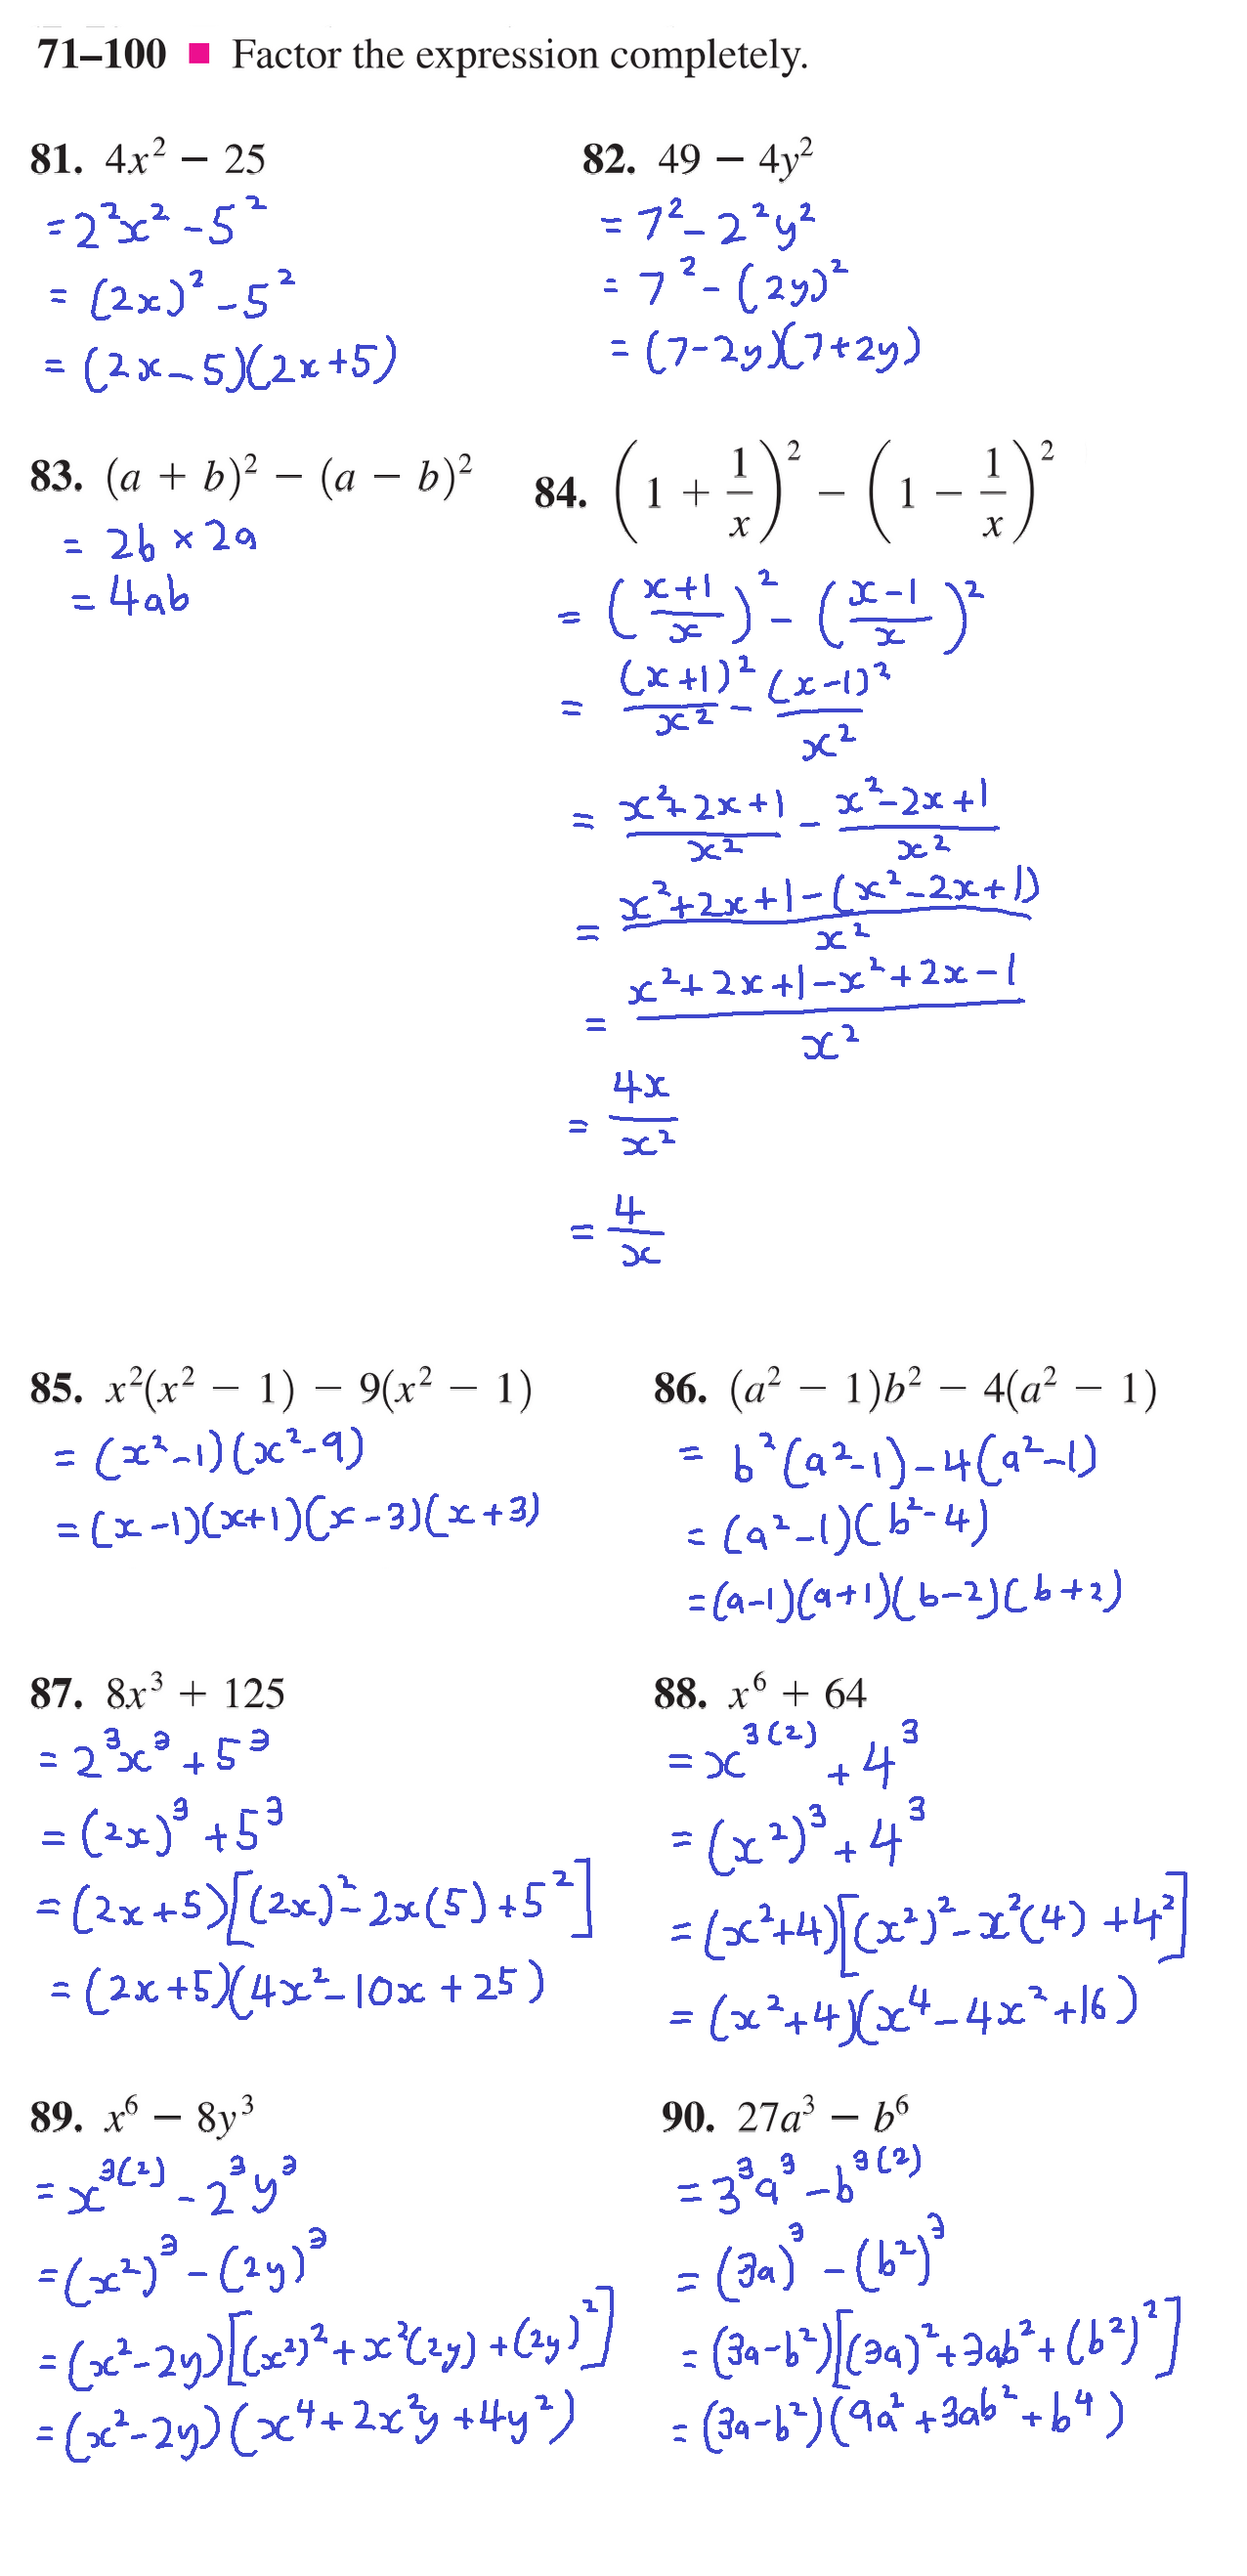 71–100 ■ Factor the expression completely.
81. 4x² − 25
= 2²x² - 5²
= (2x)² - 5²
= (2x - 5)(2x + 5)
82. 49 − 4y²
= 7² - 2²y²
= 7² - (2y)²
= (7 - 2y)(7 + 2y)
83. (a + b)² − (a − b)²
= 2b × 2a
= 4ab
84. (1 + 1/x)² − (1 − 1/x)²
= ((x+1)/x)² - ((x-1)/x)²
= (x+1)²/x² - (x-1)²/x²
= (x²+2x+1)/x² - (x²-2x+1)/x²
= (x²+2x+1-(x²-2x+1))/x²
= (x²+2x+1-x²+2x-1)/x²
= 4x/x²
= 4/x
85. x²(x² − 1) − 9(x² − 1)
= (x²-1)(x²-9)
= (x-1)(x+1)(x-3)(x+3)
86. (a² − 1)b² − 4(a² − 1)
= b²(a²-1) - 4(a²-1)
= (a²-1)(b²-4)
= (a-1)(a+1)(b-2)(b+2)
87. 8x³ + 125
= 2³x³ + 5³
= (2x)³ + 5³
= (2x+5)[(2x)² - 2x(5) + 5²]
= (2x+5)(4x² - 10x + 25)
88. x⁶ + 64
= x³⁽²⁾ + 4³
= (x²)³ + 4³
= (x²+4)[(x²)² - x²(4) + 4²]
= (x²+4)(x⁴ - 4x² + 16)
89. x⁶ − 8y³
= x³⁽²⁾ - 2³y³
= (x²)³ - (2y)³
= (x²-2y)[(x²)² + x²(2y) + (2y)²]
= (x²-2y)(x⁴ + 2x²y + 4y²)
90. 27a³ − b⁶
= 3³a³ - b³⁽²⁾
= (3a)³ - (b²)³
= (3a-b²)[(3a)² + 3ab² + (b²)²]
= (3a-b²)(9a² + 3ab² + b⁴)